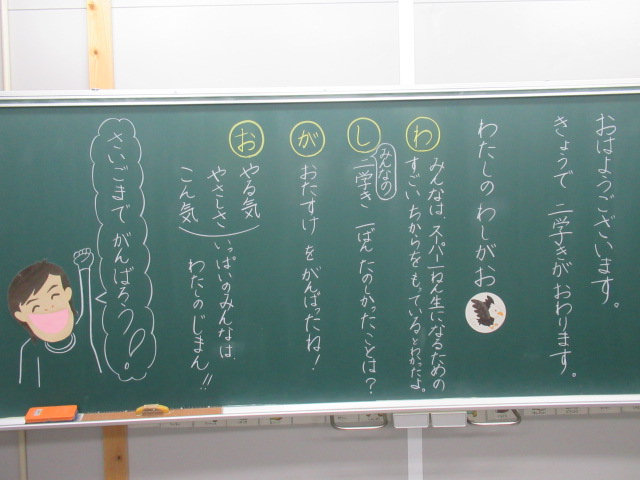 おはようございます。
きょうで 二学きが おわります。
わたしの わしがお
わ
みんなは、スーパー一ねん生になるための
すごい ちからを もっていると わかったよ。
し
みんなの
二学き 一ばん たのしかったことは？
が
おたすけ をがんばったね！
お
やる気
やさしさ
こん気
いっぱいのみんなは
わたしのじまん!!
さいごまで がんばろう！。